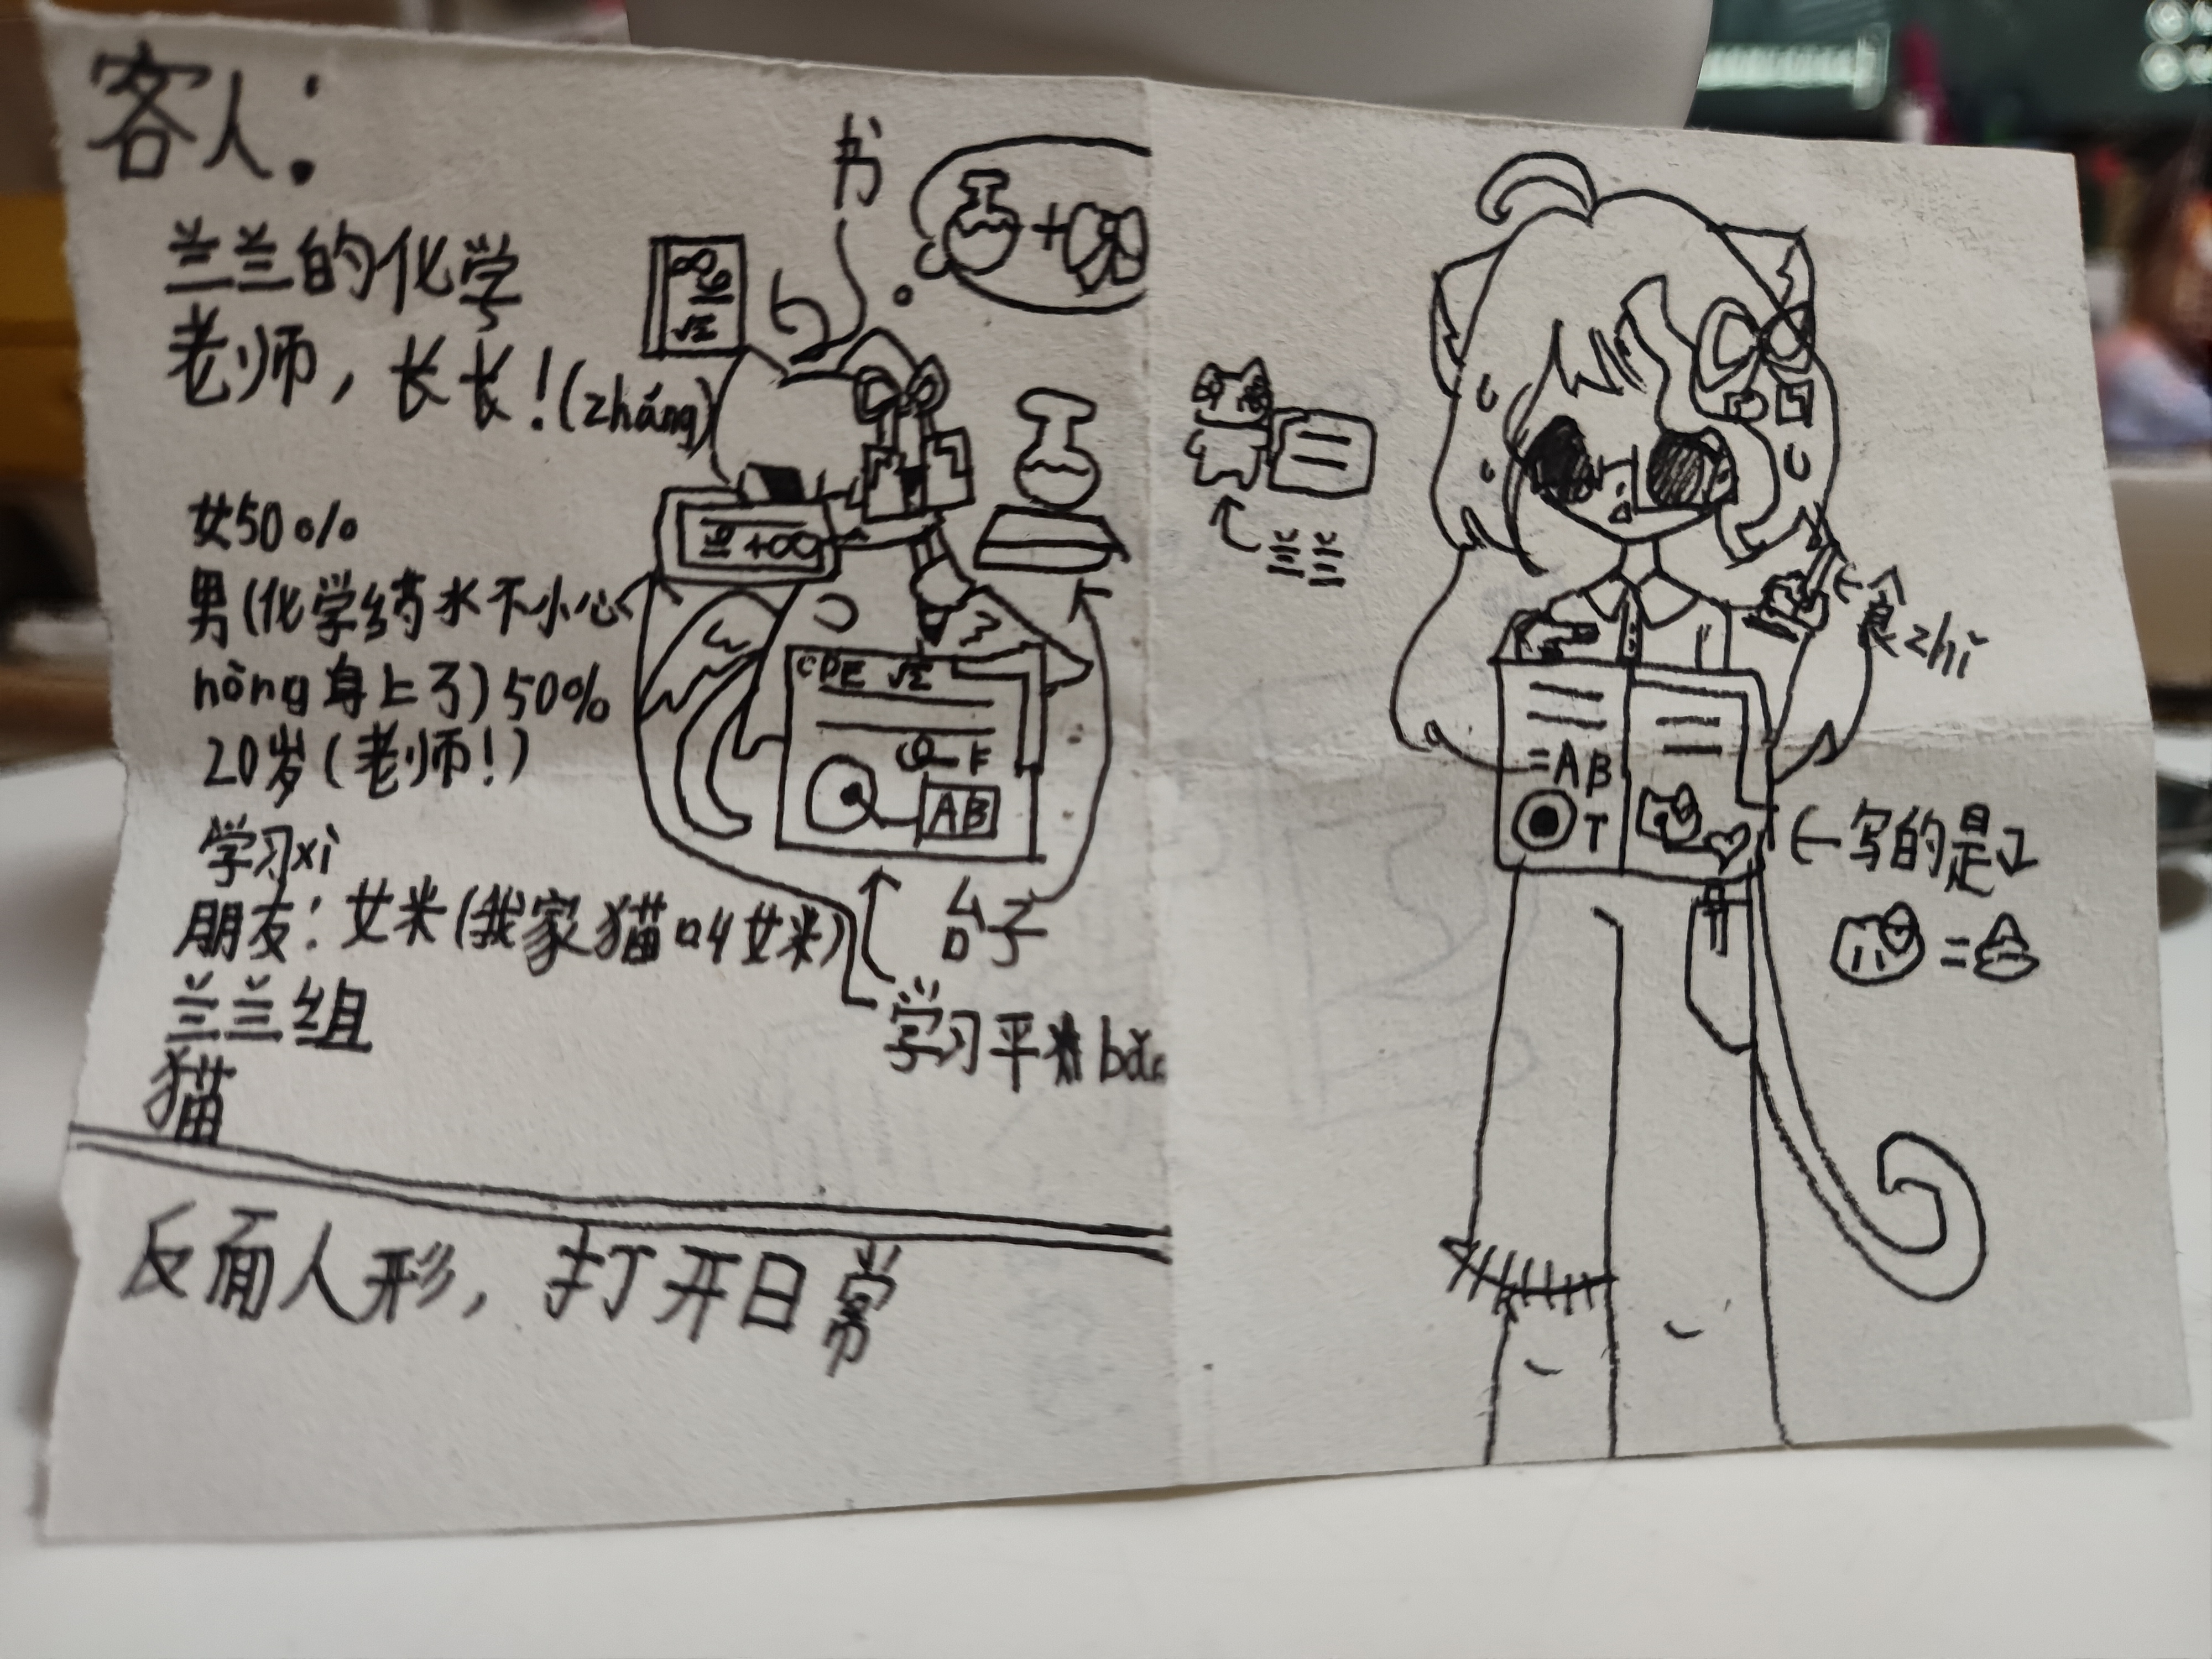 客人：
兰兰的化学
老师，长长！(zháng)
女50%
男(化学药水不小心
nòng身上了)50%
20岁(老师！)
学习xì
朋友：女米(我家猫叫女米)
兰兰组
猫
书
台子
学习平
CDE √Σ
AB
反面人形，打开日常
兰兰
食zhǐ
=AB
T
写的是